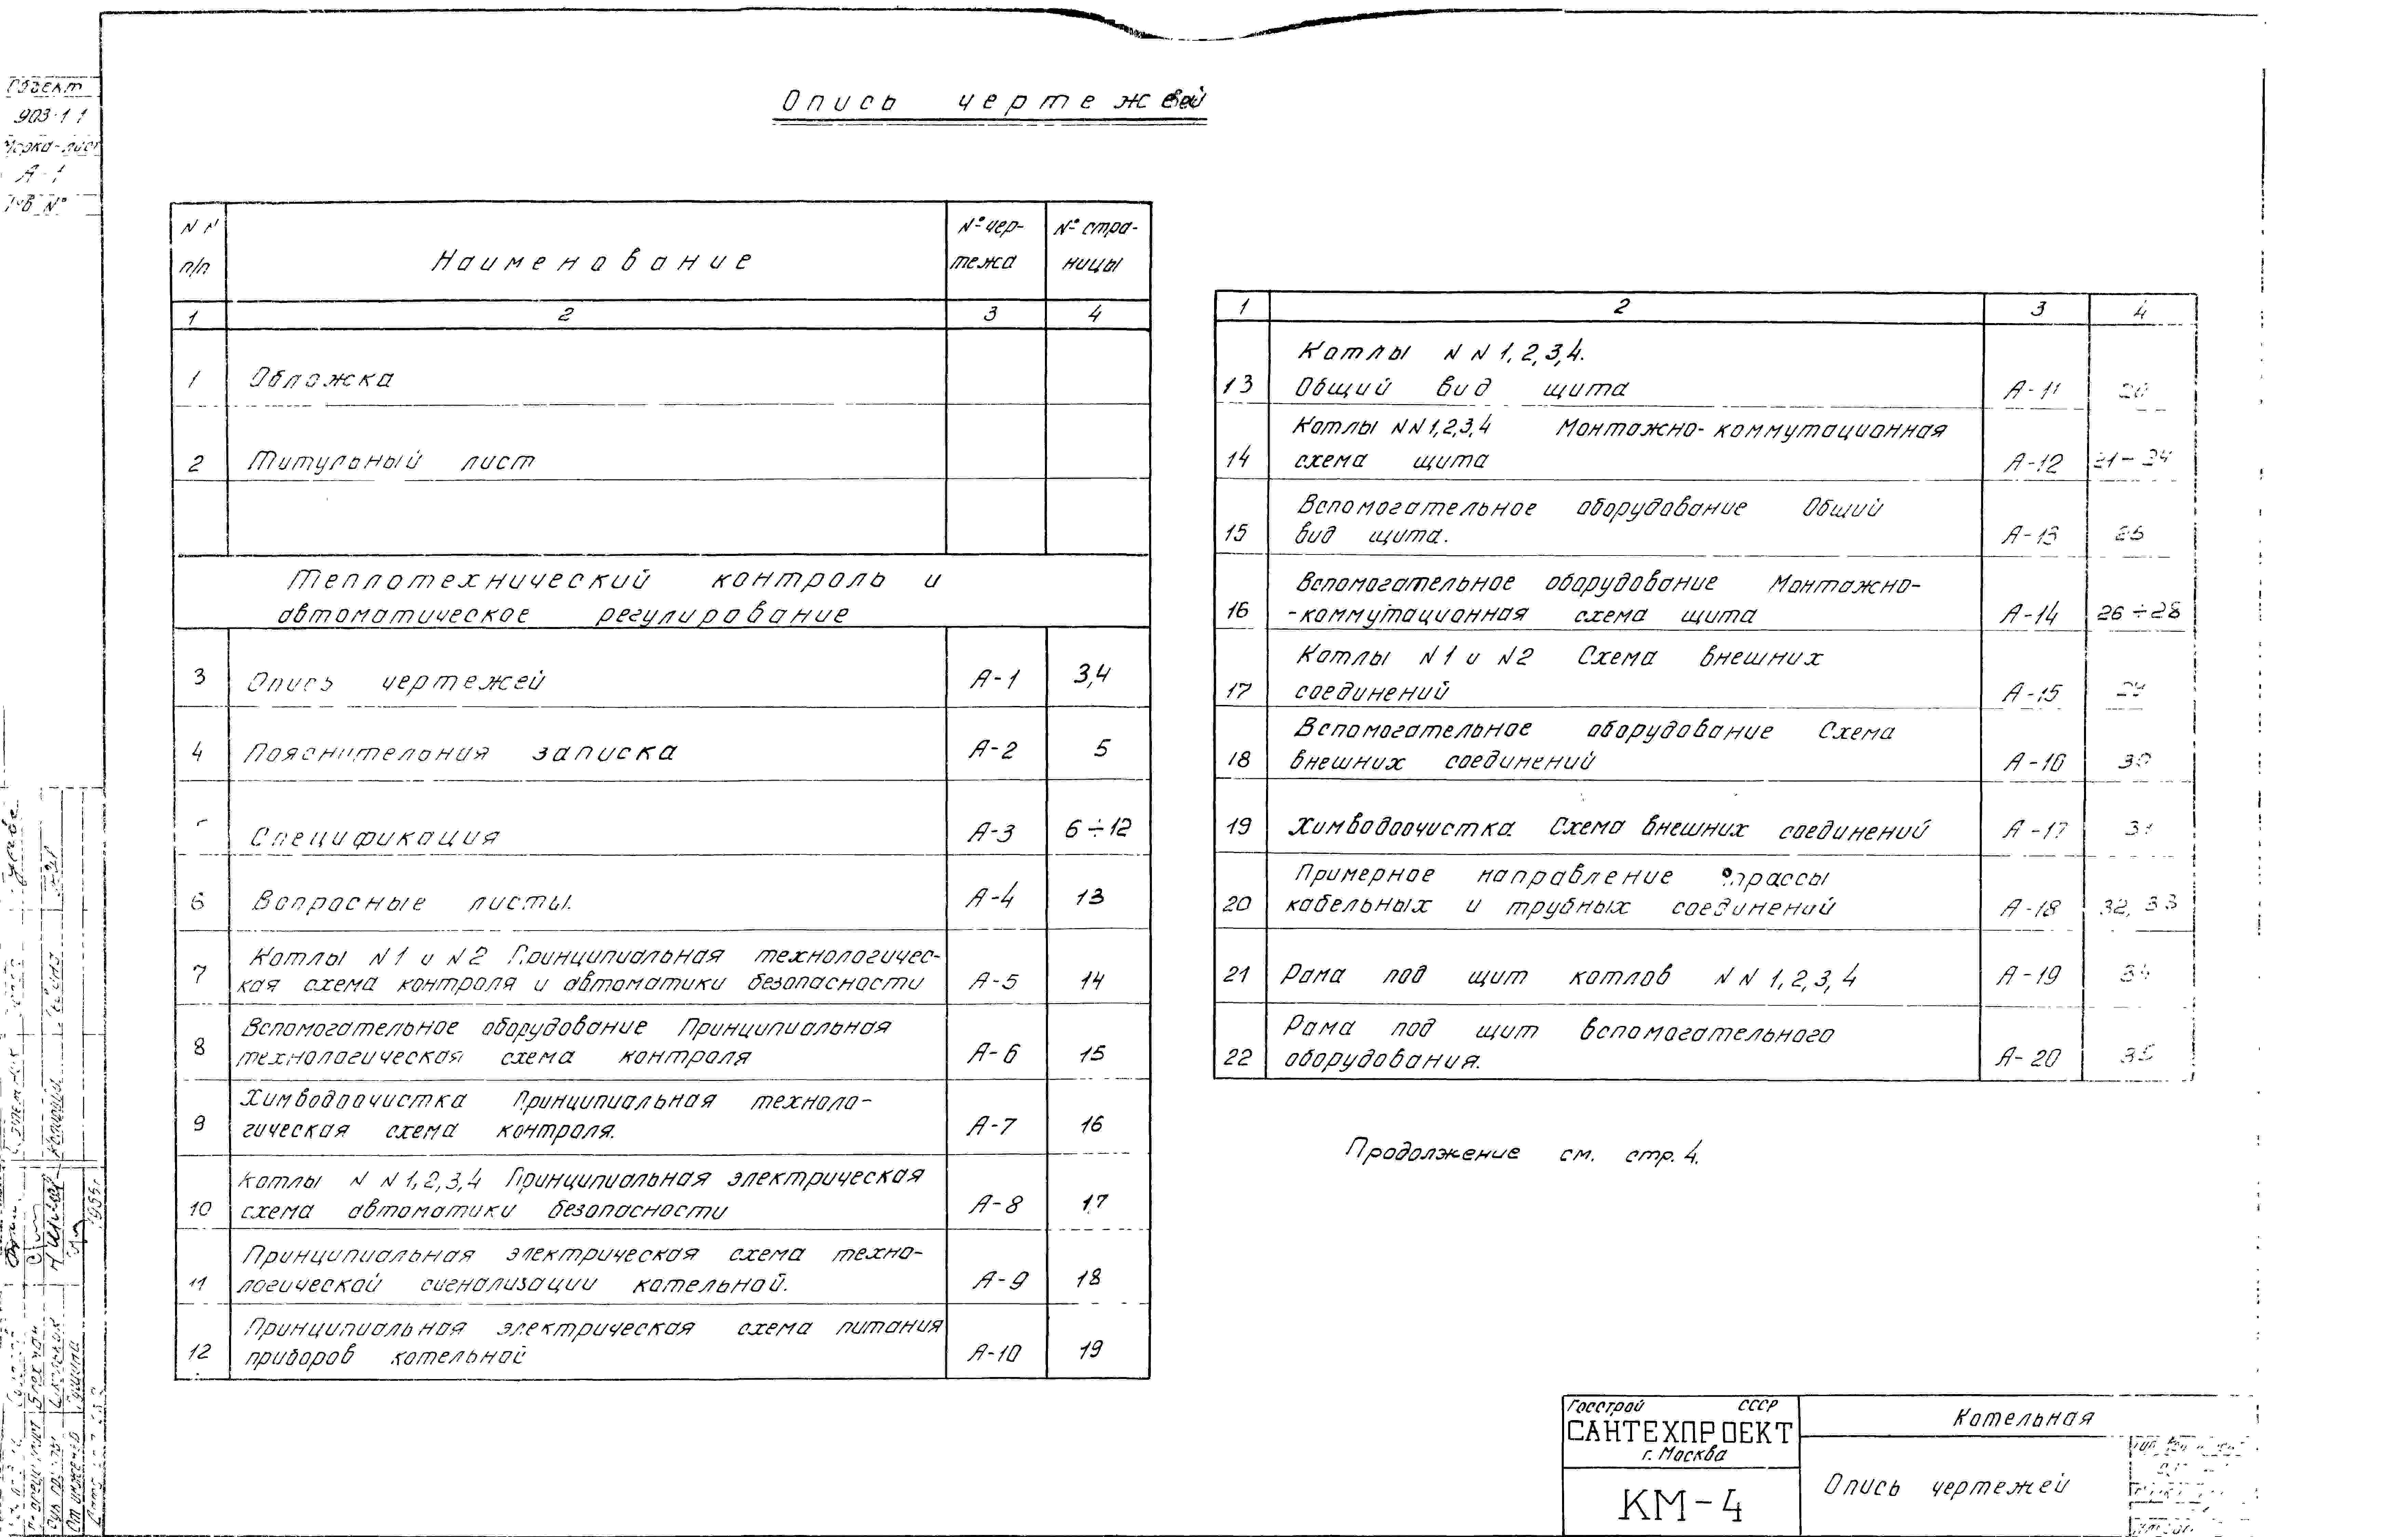 Объект
903-1 1
Марка-лист
А-1
Опись чертежей
N N п/п
Наименование
№ чертежа
№ страницы
1 2 3 4
1 Обложка
2 Титульный лист
Теплотехнический контроль и
автоматическое регулирование
3 Опись чертежей А-1 3,4
4 Пояснительная записка А-2 5
Спецификация А-3 6÷12
6 Вопросные листы. А-4 13
7 Котлы N1 и N2 Принципиальная технологичес-
кая схема контроля и автоматики безопасности А-5 14
8 Вспомогательное оборудование Принципиальная
технологическая схема контроля А-6 15
9 Химводоочистка Принципиальная техноло-
гическая схема контроля. А-7 16
10 Котлы N N 1,2,3,4 Принципиальная электрическая
схема автоматики безопасности А-8 17
11 Принципиальная электрическая схема техно-
логической сигнализации котельной. А-9 18
12 Принципиальная электрическая схема питания
приборов котельной А-10 19
1 2 3 4
Котлы N N 1,2,3,4.
13 Общий вид щита А-11 20
Котлы NN1,2,3,4 Монтажно-коммутационная
14 схема щита А-12 21-24
Вспомогательное оборудование Общий
15 вид щита. А-13 25
Вспомогательное оборудование Монтажно-
16 -коммутационная схема щита А-14 26÷28
Котлы N1 и N2 Схема внешних
17 соединений А-15 29
Вспомогательное оборудование Схема
18 внешних соединений А-16 30
19 Химводоочистка Схема внешних соединений А-17 31
Примерное направление трассы
20 кабельных и трубных соединений А-18 32, 33
21 Рама под щит котлов N N 1,2,3,4 А-19 34
Рама под щит вспомогательного
22 оборудования. А-20 35
Продолжение см. стр. 4.
Госстрой СССР
САНТЕХПРОЕКТ
г. Москва
КМ-4
Котельная
Опись чертежей